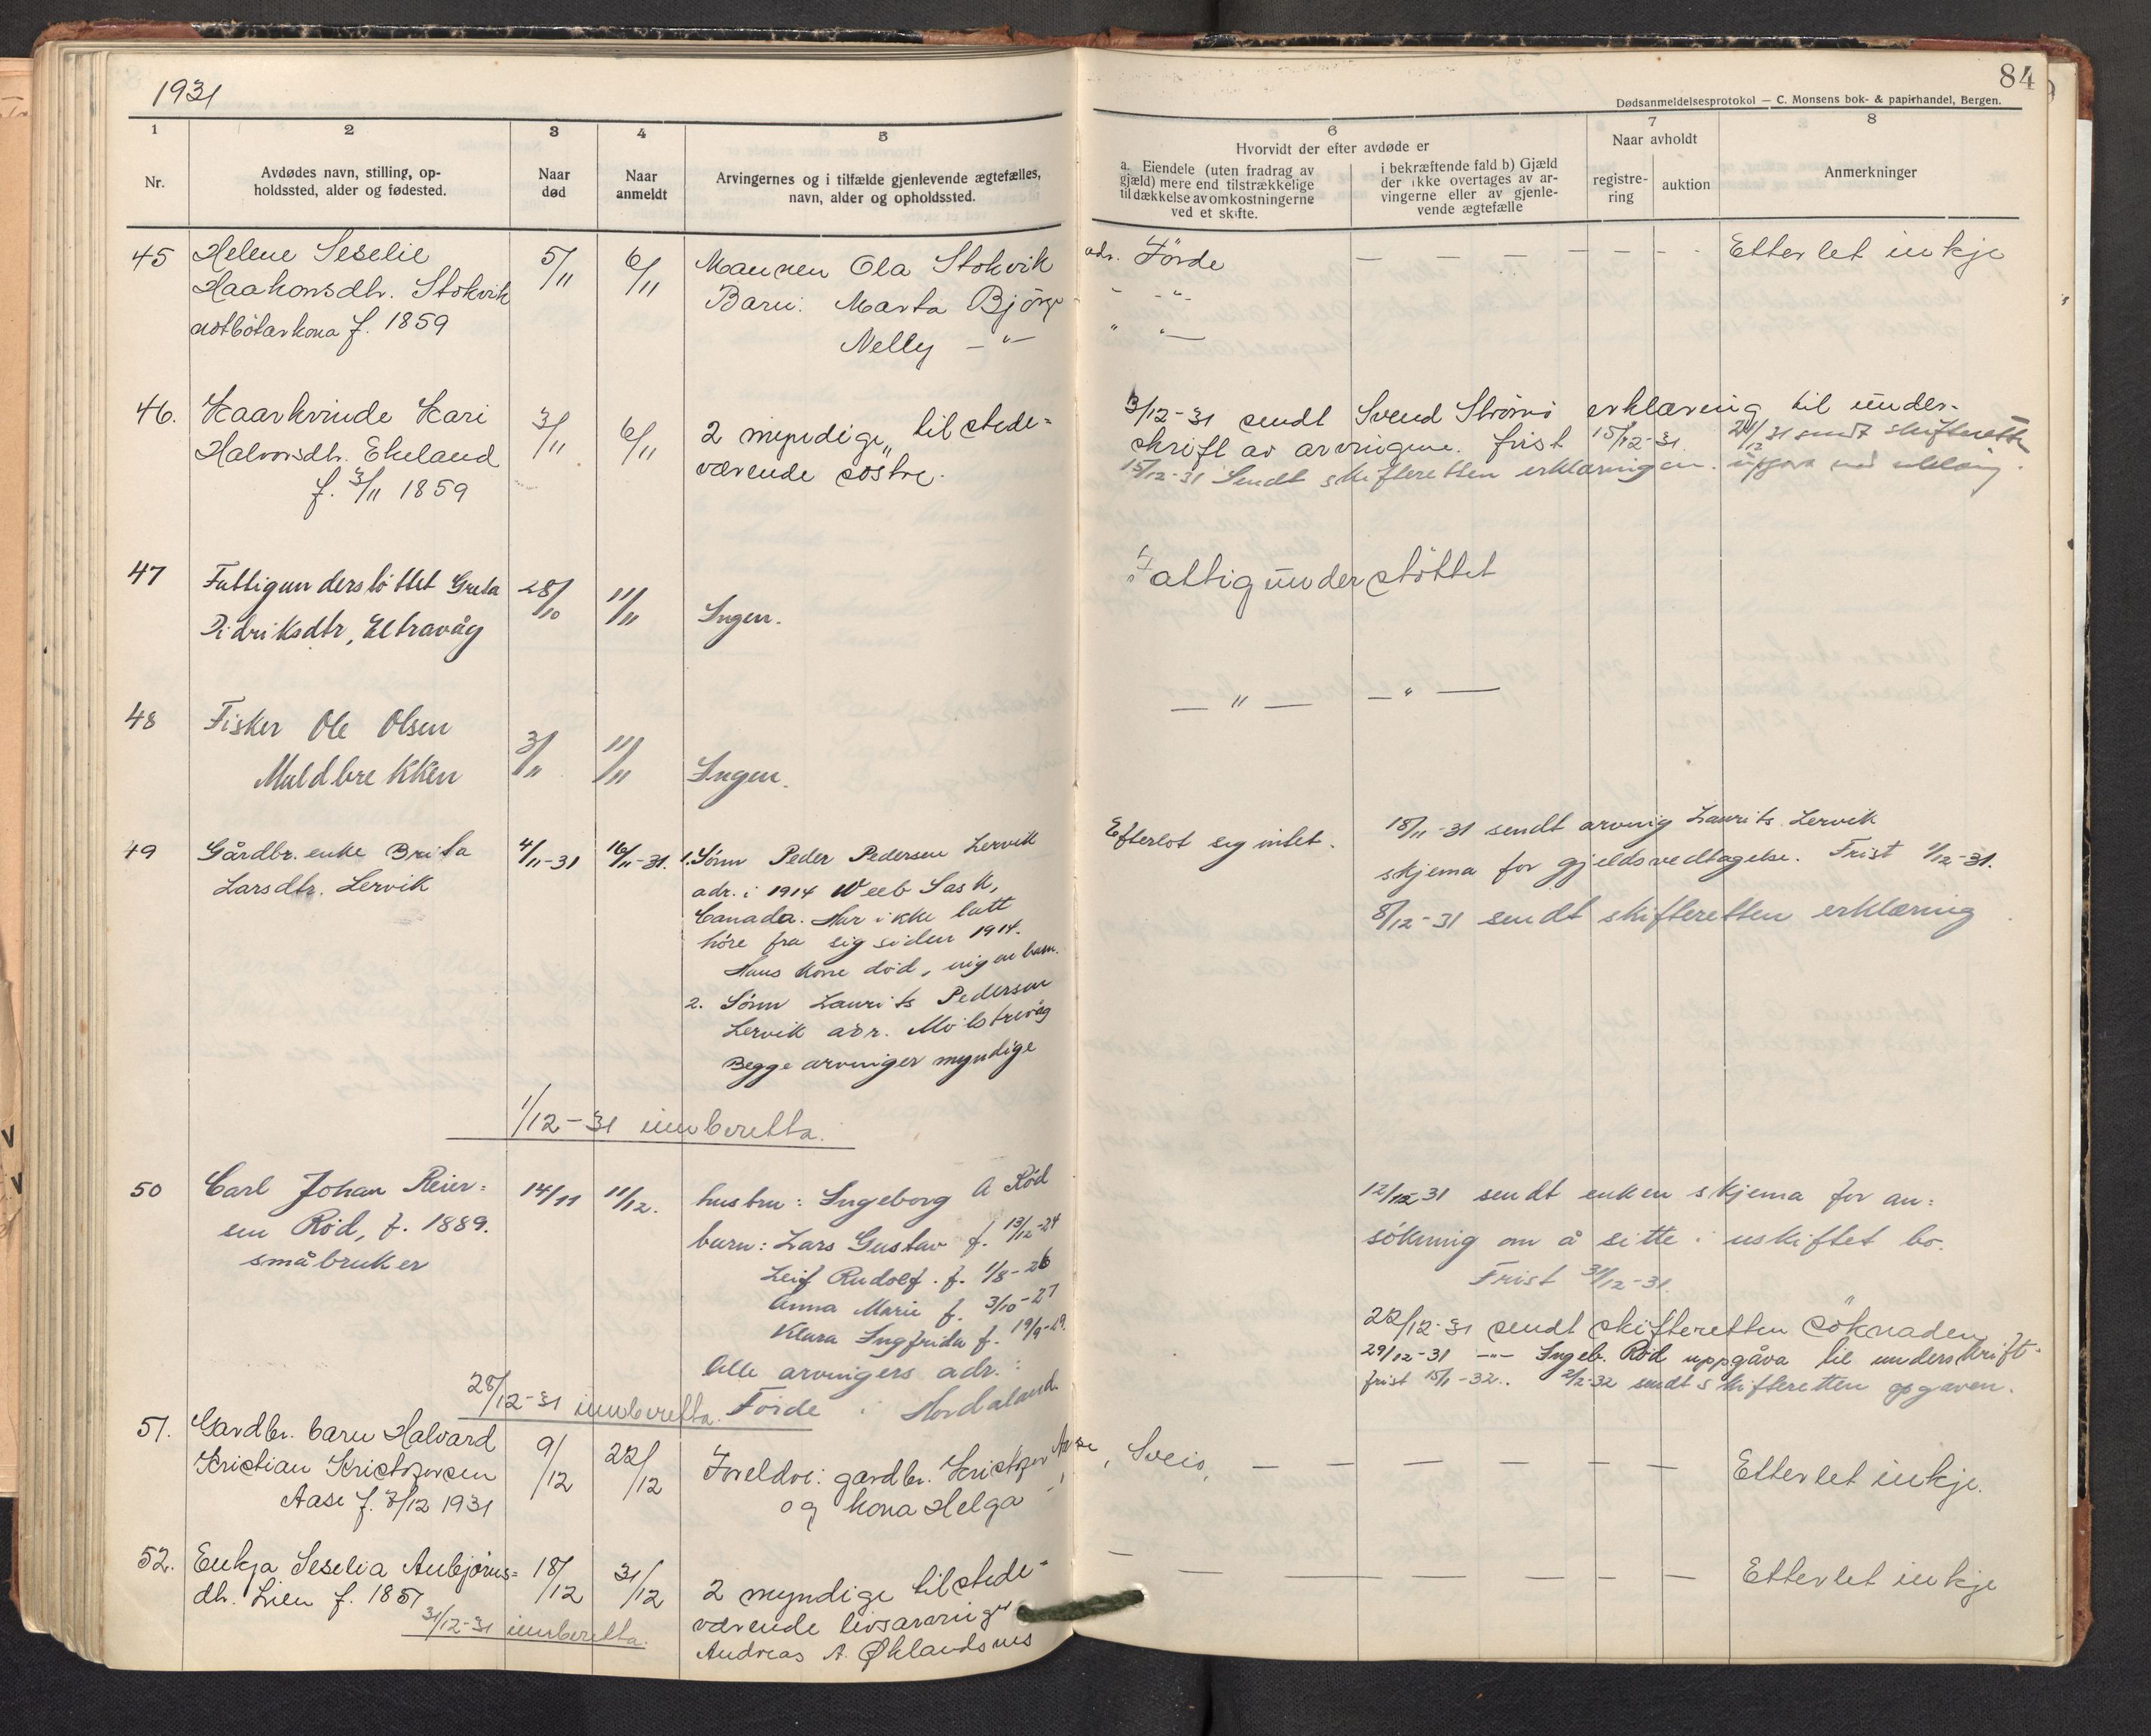 1931
84
Dødsanmeldelsesprotokol — C. Monsens bok- & papirhandel, Bergen.
1
Nr.
2
Avdødes navn, stilling, op-
holdssted, alder og fødested.
3
Naar
død
4
Naar
anmeldt
5
Arvingernes og i tilfælde gjenlevende ægtefælles,
navn, alder og opholdssted.
6
Hvorvidt der efter avdøde er
a. Eiendele (uten fradrag av
gjæld) mere end tilstrækkelige
til dækkelse av omkostningerne
ved et skifte.
i bekræftende fald b) Gjæld
der ikke overtages av ar-
vingerne eller av gjenle-
vende ægtefælle
7
Naar avholdt
registre-
ring
auktion
8
Anmerkninger
45
Helene Seselie
Haakonsdtr. Stokvik
notbötarkona f. 1859
5/11
6/11
Mannen Ola Stokvik
Barn: Marta Björge
Nelly — " —
adr. Förde
- - " -
" " —
— — — — — — - -
Etterlet inkje
46.
Kaarkvinde Kari
Halvorsdtr. Ekeland
f. 3/11 1859
3/11
6/11
2 myndige, tilstede-
værende søstre.
3/12-31 sendt Svend Strömö erklæring til under-
skrift av arvingene. frist 15/12-31.
15/12-31 Sendt skifteretten erklæringen.
21/12 31 sendt skifteretten
47
Fattigunderstöttet Greta
Didriksdtr, Eltravåg
28/10
11/11
Ingen.
Fattigunderstöttet
48
Fisker Ole Olsen
Muldbrekken
3/11
11/11
Ingen.
— " — — " —
49
Gårdbr. enke Brita
Larsdtr. Lervik
4/11-31
16/11-31.
1. Sönn Peder Pedersen Lervik
adr. i 1914 Weeb Sask,
Canada. Har ikke latt
höre fra sig siden 1914.
Hans kone död, ingen barn.
2. Sönn Laurits Pedersen
Lervik adr. Mölstrevåg
Begge arvinger myndige
Efterlot sig intet.
18/11-31 sendt arving Laurits Lervik
skjema for gjeldsvedtagelse. Frist 1/12-31.
8/12-31 sendt skifteretten erklæring
1/12-31 innberetta.
50
Carl Johan Reier-
sen Röd, f. 1889.
småbruker
14/11
11/12.
hustru: Ingeborg A Röd
barn: Lars Gustav f. 13/12-24
Leif Rudolf. f. 1/8-26
Anna Marie f. 3/10-27
Klara Ingfrida f. 19/9-29.
Alle arvingers adr.:
Förde i Hordaland.
12/12 31 sendt enken skjema for an-
sökning om å sitte i uskiftet bo.
Frist 31/12-31.
22/12-31 sendt skifteretten söknaden
29/12-31 -"- Ingeb. Röd uppgåva til underskrift.
frist 15/1-32. 2/2-32 sendt skifteretten opgaven.
28/12-31 innberetta.
51.
Gardbr. barn Halvard
Kristian Kristofersen
Aase f. 7/12 1931
9/12
22/12
Foreldre: gardbr. Kristofer Aase, Sveio,
og kona Helga -"-
— — — — — — —
Etterlet inkje.
52.
Enkja Seselia Anbjörns-
dtr. Lien f. 1851
18/12
31/12
2 myndige tilstede-
værende livsarvinger
Andreas A. Øklandsnes
— — — — — — — —
Etterlet inkje
31/12-31 innberetta.